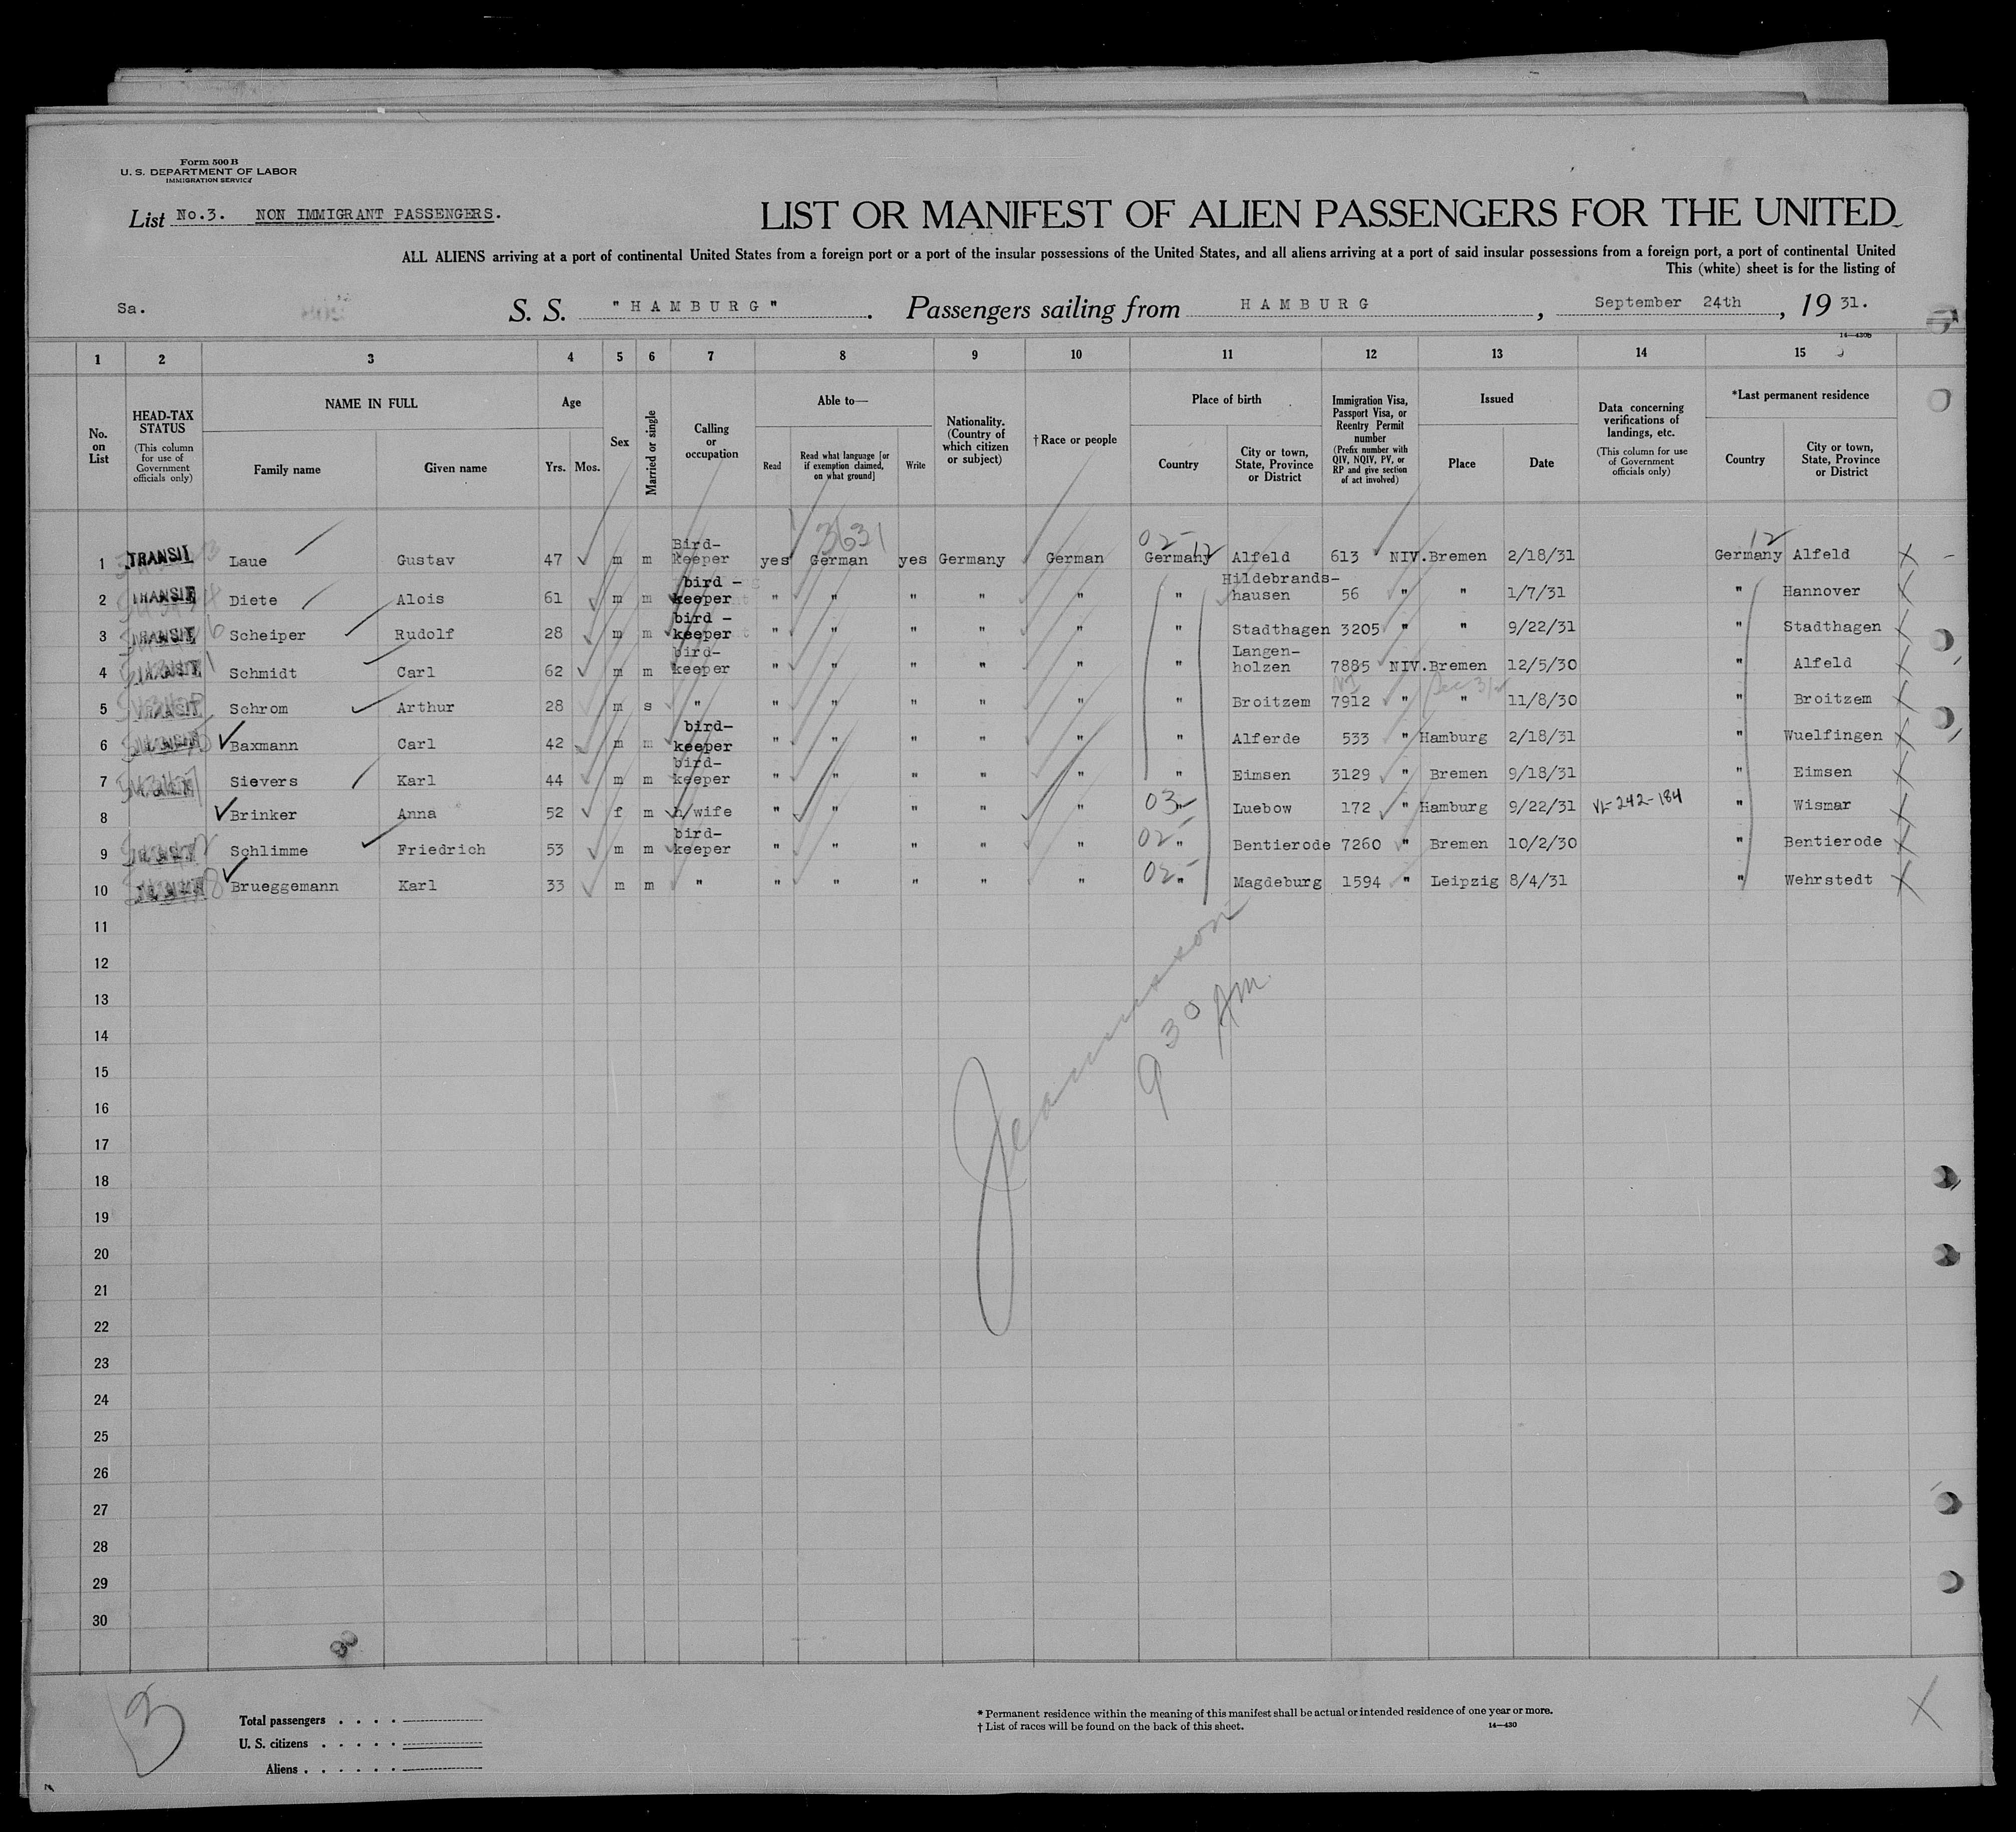 Form 500 B
U. S. DEPARTMENT OF LABOR
IMMIGRATION SERVICE
List No.3. NON IMMIGRANT PASSENGERS.
LIST OR MANIFEST OF ALIEN PASSENGERS FOR THE UNITED
ALL ALIENS arriving at a port of continental United States from a foreign port or a port of the insular possessions of the United States, and all aliens arriving at a port of said insular possessions from a foreign port, a port of continental United
This (white) sheet is for the listing of
Sa. S. S. "HAMBURG". Passengers sailing from HAMBURG, September 24th, 19 31.
14—430b
1 2 3 4 5 6 7 8 9 10 11 12 13 14 15
No. on List
HEAD-TAX STATUS (This column for use of Government officials only)
NAME IN FULL
Family name Given name
Age
Yrs. Mos.
Sex
Married or single
Calling or occupation
Able to—
Read Read what language [or if exemption claimed, on what ground] Write
Nationality. (Country of which citizen or subject)
†Race or people
Place of birth
Country City or town, State, Province or District
Immigration Visa, Passport Visa, or Reentry Permit number (Prefix number with QIV, NQIV, PV, or RP and give section of act involved)
Issued
Place Date
Data concerning verifications of landings, etc. (This column for use of Government officials only)
*Last permanent residence
Country City or town, State, Province or District
3631 02- 12 12
1 TRANSIT Laue Gustav 47 m m Bird-keeper yes German yes Germany German Germany Alfeld 613 NIV. Bremen 2/18/31 Germany Alfeld
2 TRANSIT Diete Alois 61 m m bird-keeper " " " " " " Hildebrands-hausen 56 " " 1/7/31 " Hannover
3 TRANSIT Scheiper Rudolf 28 m m bird-keeper " " " " " " Stadthagen 3205 " " 9/22/31 " Stadthagen
4 TRANSIT Schmidt Carl 62 m m bird-keeper " " " " " " Langen-holzen 7885 NIV. Bremen 12/5/30 " Alfeld
5 TRANSIT Schrom Arthur 28 m s " " " " " " " Broitzem 7912 " " 11/8/30 " Broitzem
6 TRANSIT Baxmann Carl 42 m m bird-keeper " " " " " " Alferde 533 " Hamburg 2/18/31 " Wuelfingen
7 TRANSIT Sievers Karl 44 m m bird-keeper " " " " " " Eimsen 3129 " Bremen 9/18/31 " Eimsen
8 Brinker Anna 52 f m h/wife " " " " " 03- " Luebow 172 " Hamburg 9/22/31 VL-242-184 " Wismar
9 TRANSIT Schlimme Friedrich 53 m m bird-keeper " " " " " 02- " Bentierode 7260 " Bremen 10/2/30 " Bentierode
10 TRANSIT Brueggemann Karl 33 m m " " " " " " 02- " Magdeburg 1594 " Leipzig 8/4/31 " Wehrstedt
11
12
13
14
15
16
17
18
19
20
21
22
23
24
25
26
27
28
29
30
9 30 AM
3
Total passengers . . . .
U. S. citizens . . . . .
Aliens . . . . . .
* Permanent residence within the meaning of this manifest shall be actual or intended residence of one year or more.
† List of races will be found on the back of this sheet.
14—430